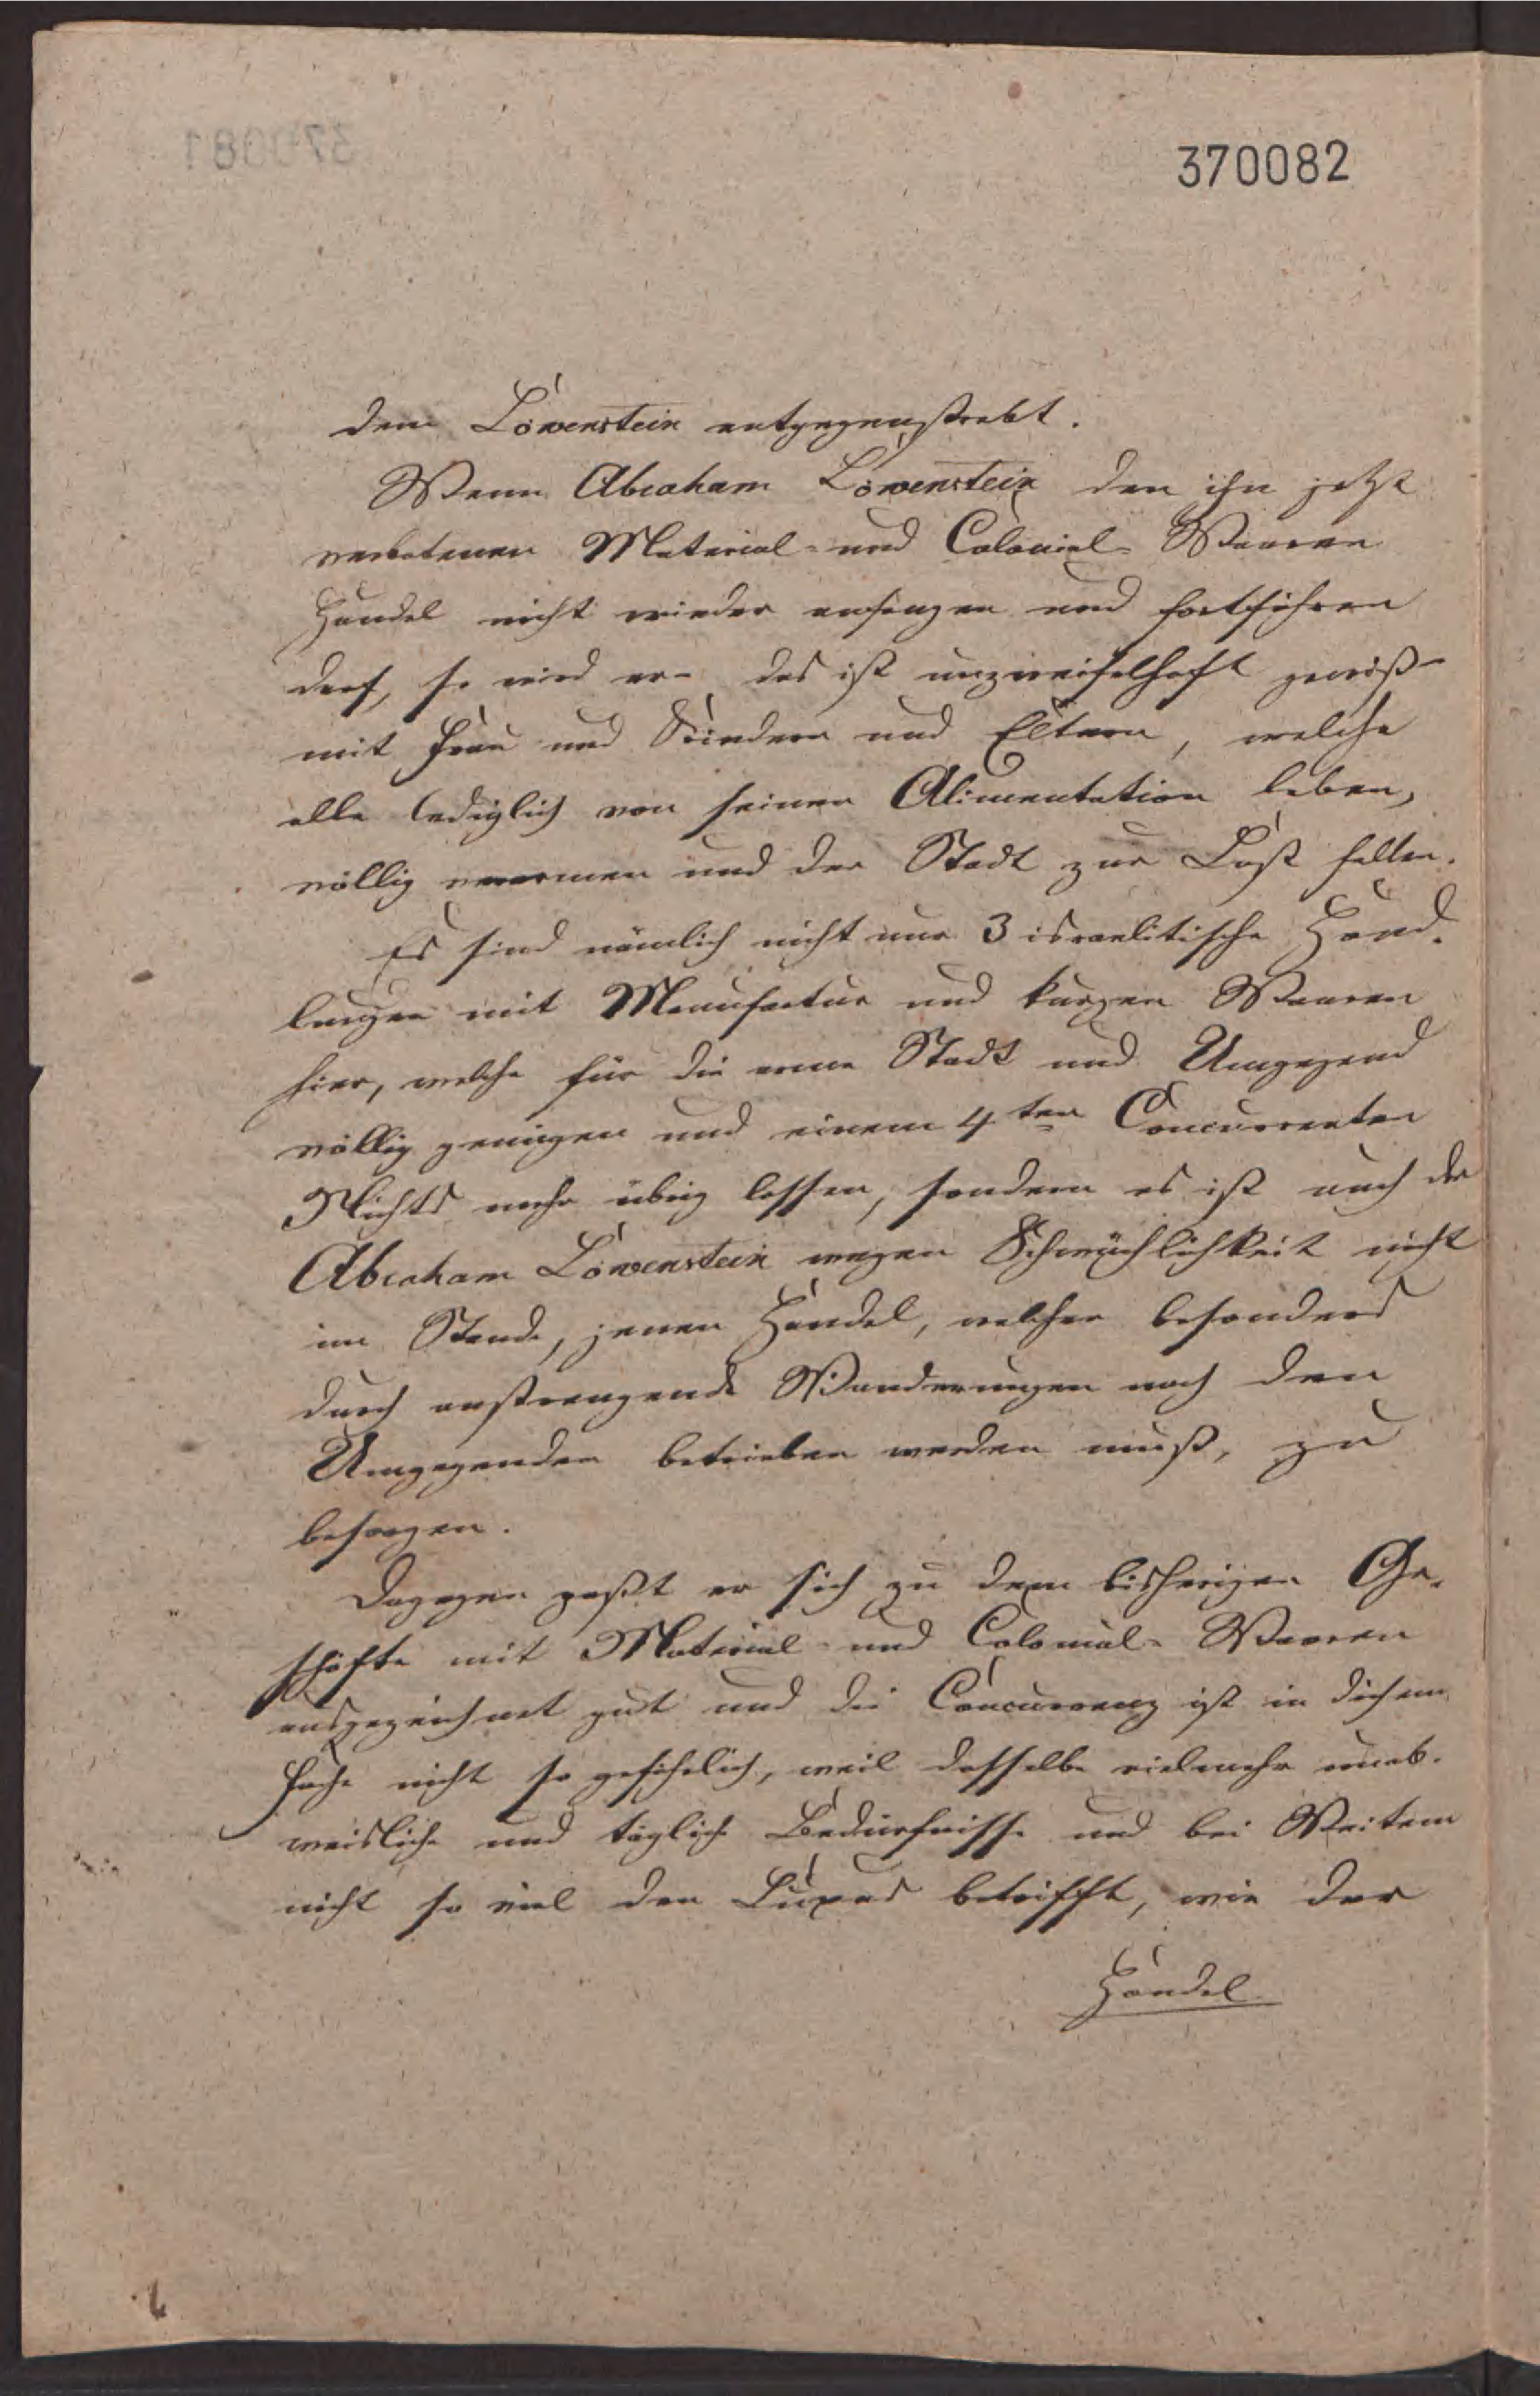 370082
370081
dem Löwenstein entgegenstrebt.
Wenn Abraham Löwenstein den ihn jetzt
verbotenen Material- und Colonial- Waaren
Handel nicht wieder anfangen und fortführen
darf, so wird er - das ist unzweifelhaft gewiß -
mit Frau und Kindern und Eltern, welche
alle lediglich von seiner Alimentation leben,
völlig verarmen und der Stadt zur Last fallen.
Es sind nämlich nicht nur 3 israelitische Hand-
lungen mit Manufactur und kurzen Waaren
hier, welche für die arme Stadt und Umgegend
völlig genügen und einem 4ten Concurrenten
Nichts mehr übrig lassen, sondern es ist auch der
Abraham Löwenstein wegen Schwächlichkeit nicht
im Stande, jenen Handel, welcher besonders
durch anstrengende Wanderungen nach den
Umgegenden betrieben werden muß, zu
besorgen.
Dagegen paßt er sich zu dem bisherigen Ge-
schäfte mit Material- und Colonial- Waaren
ausgezeichnet gut und die Concurrenz ist in diesem
Fache nicht so gefährlich, weil dasselbe vielmehr unab-
weisliche und tägliche Bedürfnisse und bei Weitem
nicht so viel den Luxus betrifft, wie der
Handel